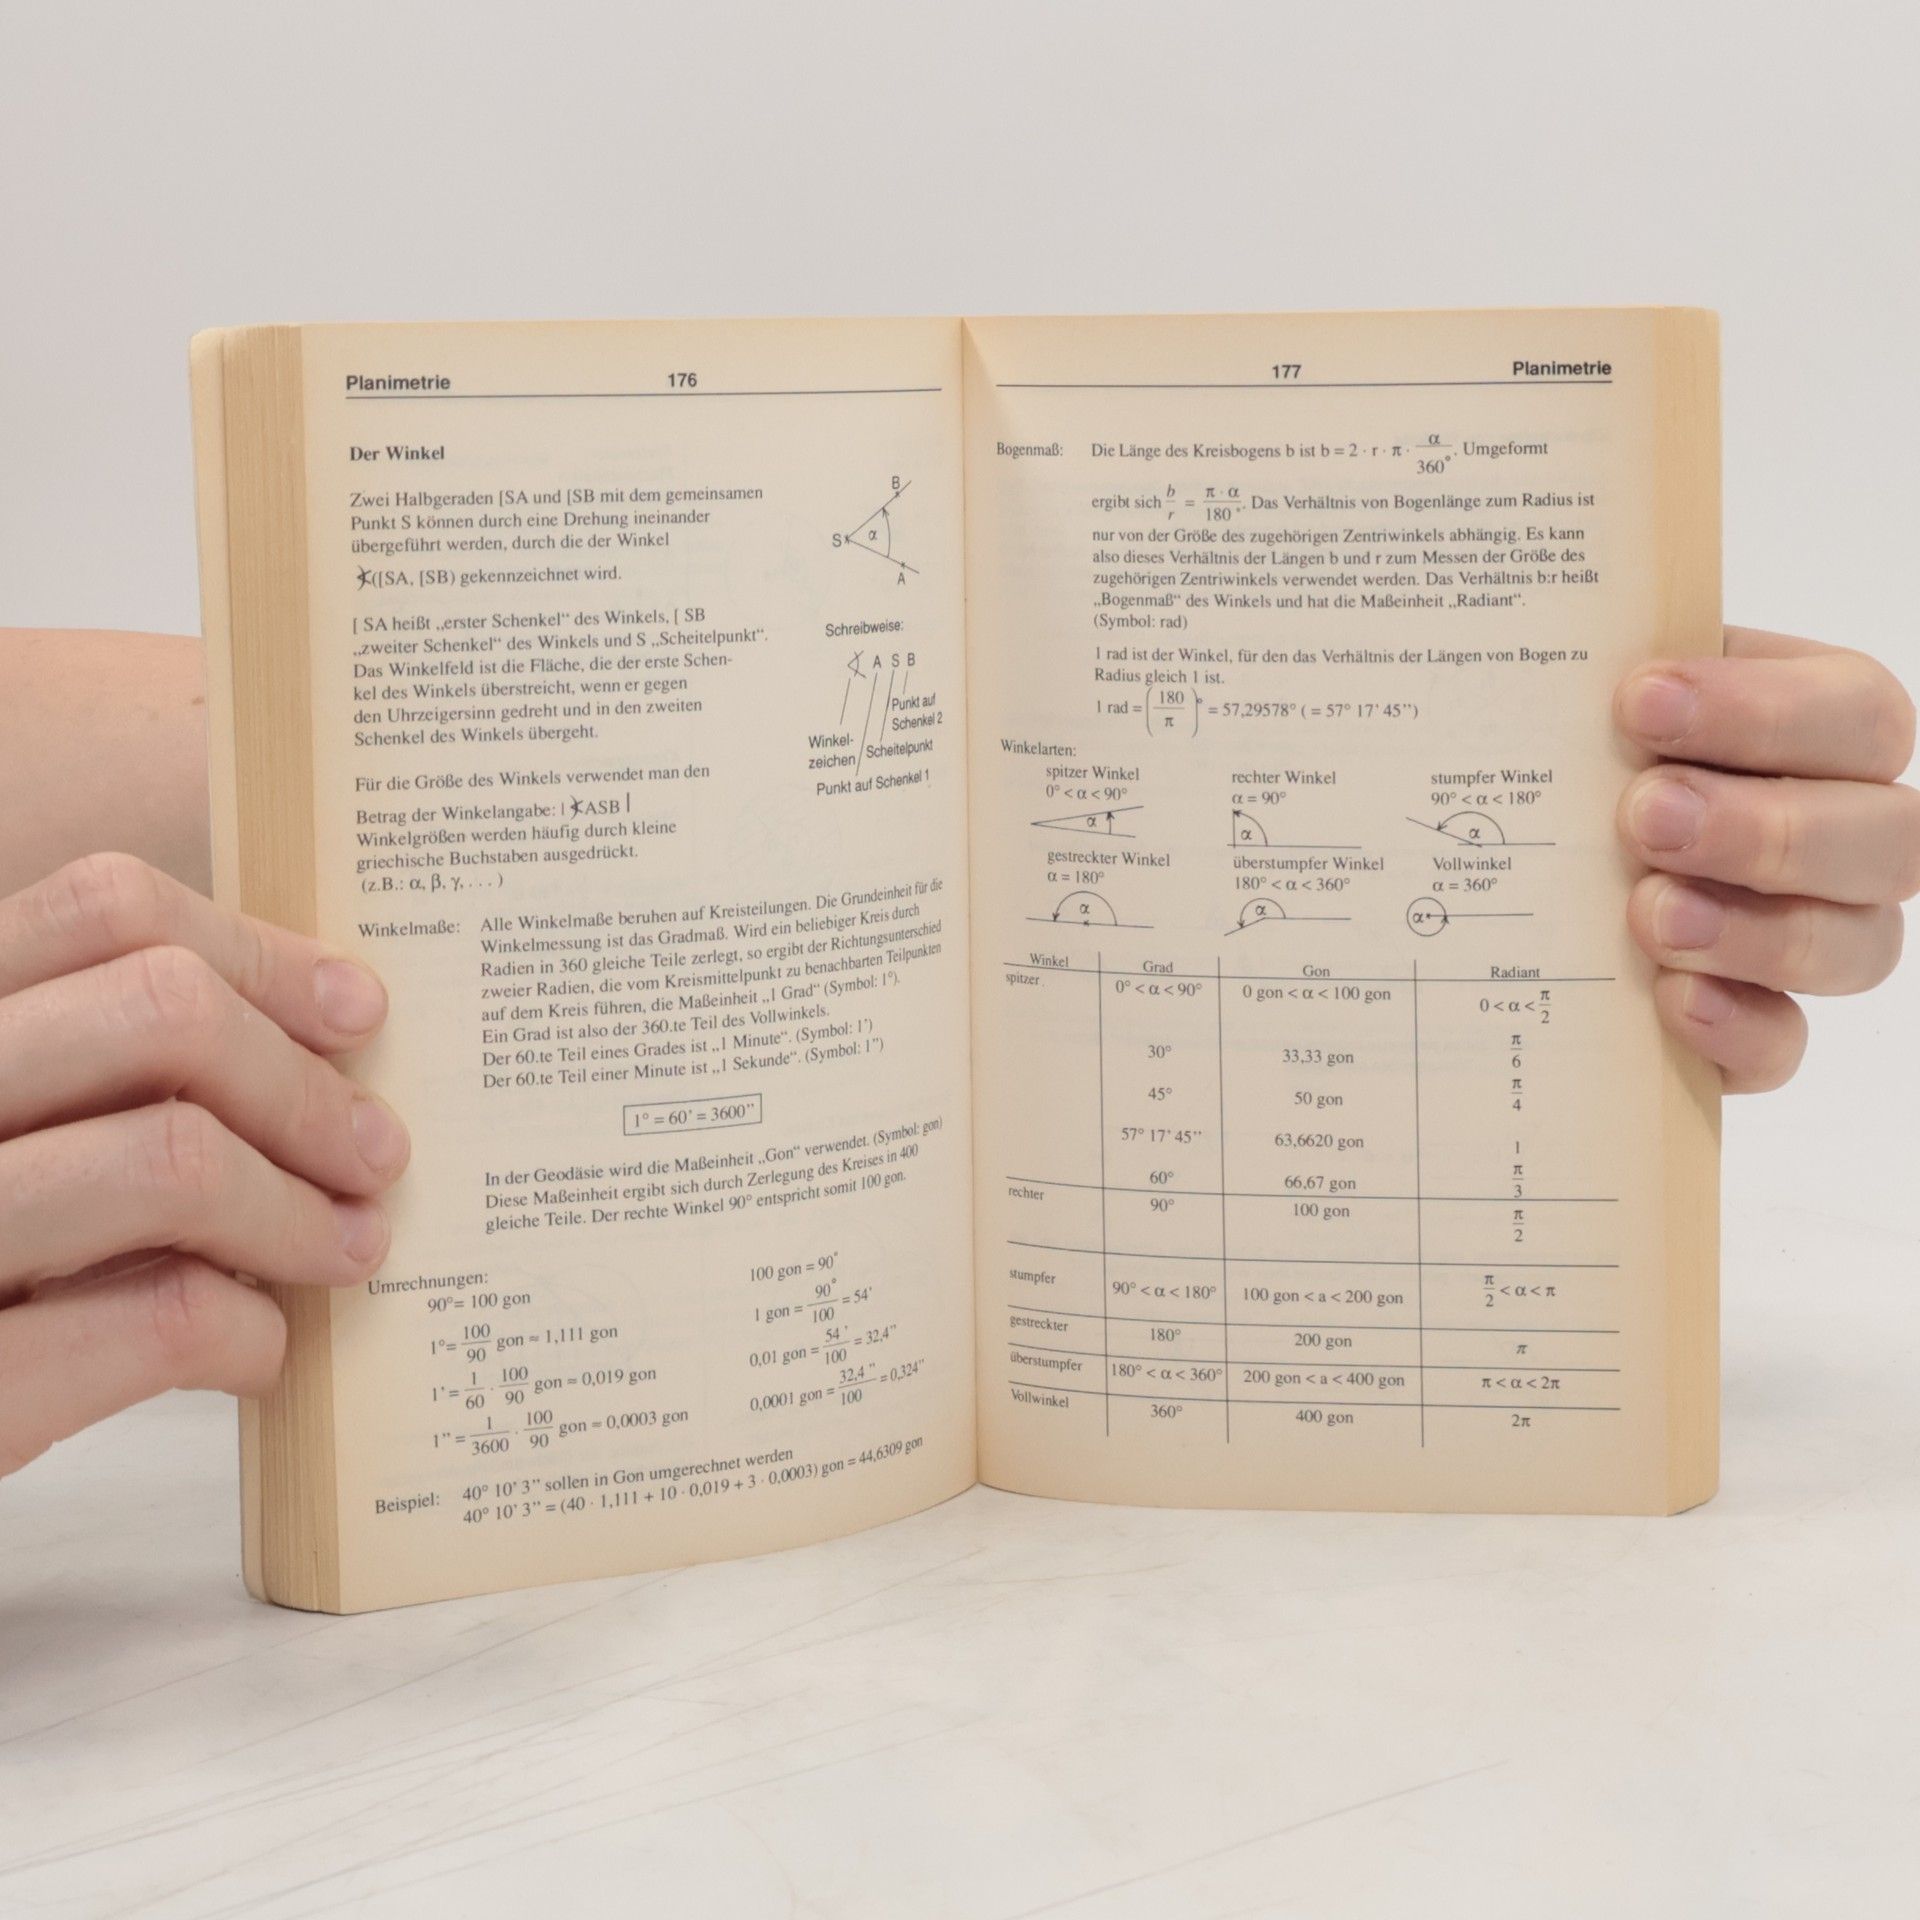 Planimetrie 176
Der Winkel
Zwei Halbgeraden [SA und [SB mit dem gemeinsamen
Punkt S können durch eine Drehung ineinander
übergeführt werden, durch die der Winkel
∢([SA, [SB) gekennzeichnet wird.
B
S α
A
[ SA heißt „erster Schenkel“ des Winkels, [ SB
„zweiter Schenkel“ des Winkels und S „Scheitelpunkt“.
Das Winkelfeld ist die Fläche, die der erste Schen-
kel des Winkels überstreicht, wenn er gegen
den Uhrzeigersinn gedreht und in den zweiten
Schenkel des Winkels übergeht.
Schreibweise:
∢ A S B
Punkt auf
Schenkel 2
Winkel-
zeichen
Scheitelpunkt
Punkt auf Schenkel 1
Für die Größe des Winkels verwendet man den
Betrag der Winkelangabe: | ∢ASB |
Winkelgrößen werden häufig durch kleine
griechische Buchstaben ausgedrückt.
(z.B.: α, β, γ, . . . )
Winkelmaße: Alle Winkelmaße beruhen auf Kreisteilungen. Die Grundeinheit für die
Winkelmessung ist das Gradmaß. Wird ein beliebiger Kreis durch
Radien in 360 gleiche Teile zerlegt, so ergibt der Richtungsunterschied
zweier Radien, die vom Kreismittelpunkt zu benachbarten Teilpunkten
auf dem Kreis führen, die Maßeinheit „1 Grad“ (Symbol: 1°).
Ein Grad ist also der 360.te Teil des Vollwinkels.
Der 60.te Teil eines Grades ist „1 Minute“. (Symbol: 1’)
Der 60.te Teil einer Minute ist „1 Sekunde“. (Symbol: 1”)
1° = 60’ = 3600”
In der Geodäsie wird die Maßeinheit „Gon“ verwendet. (Symbol: gon)
Diese Maßeinheit ergibt sich durch Zerlegung des Kreises in 400
gleiche Teile. Der rechte Winkel 90° entspricht somit 100 gon.
Umrechnungen:
90°= 100 gon
1°= 100/90 gon ≈ 1,111 gon
1’ = 1/60 · 100/90 gon ≈ 0,019 gon
1” = 1/3600 · 100/90 gon ≈ 0,0003 gon
100 gon = 90°
1 gon = 90°/100 = 54’
0,01 gon = 54’/100 = 32,4”
0,0001 gon = 32,4”/100 = 0,324”
Beispiel: 40° 10’ 3” sollen in Gon umgerechnet werden
40° 10’ 3” = (40 · 1,111 + 10 · 0,019 + 3 · 0,0003) gon = 44,6309 gon
177 Planimetrie
Bogenmaß: Die Länge des Kreisbogens b ist b = 2 · r · π · α/360°. Umgeformt
ergibt sich b/r = π · α/180°. Das Verhältnis von Bogenlänge zum Radius ist
nur von der Größe des zugehörigen Zentriwinkels abhängig. Es kann
also dieses Verhältnis der Längen b und r zum Messen der Größe des
zugehörigen Zentriwinkels verwendet werden. Das Verhältnis b:r heißt
„Bogenmaß“ des Winkels und hat die Maßeinheit „Radiant“.
(Symbol: rad)
1 rad ist der Winkel, für den das Verhältnis der Längen von Bogen zu
Radius gleich 1 ist.
1 rad = (180/π)° = 57,29578° ( = 57° 17’ 45”)
Winkelarten:
spitzer Winkel rechter Winkel stumpfer Winkel
0° < α < 90° α = 90° 90° < α < 180°
α α α
gestreckter Winkel überstumpfer Winkel Vollwinkel
α = 180° 180° < α < 360° α = 360°
α α α
Winkel Grad Gon Radiant
spitzer 0° < α < 90° 0 gon < α < 100 gon 0 < α < π/2
30° 33,33 gon π/6
45° 50 gon π/4
57° 17’ 45” 63,6620 gon 1
60° 66,67 gon π/3
rechter 90° 100 gon π/2
stumpfer 90° < α < 180° 100 gon < a < 200 gon π/2 < α < π
gestreckter 180° 200 gon π
überstumpfer 180° < α < 360° 200 gon < a < 400 gon π < α < 2π
Vollwinkel 360° 400 gon 2π